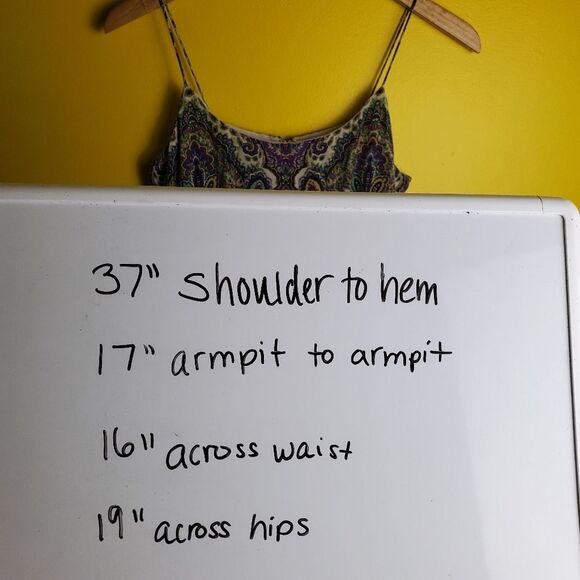 37" Shoulder to hem
17" armpit to armpit
16" across waist
19" across hips